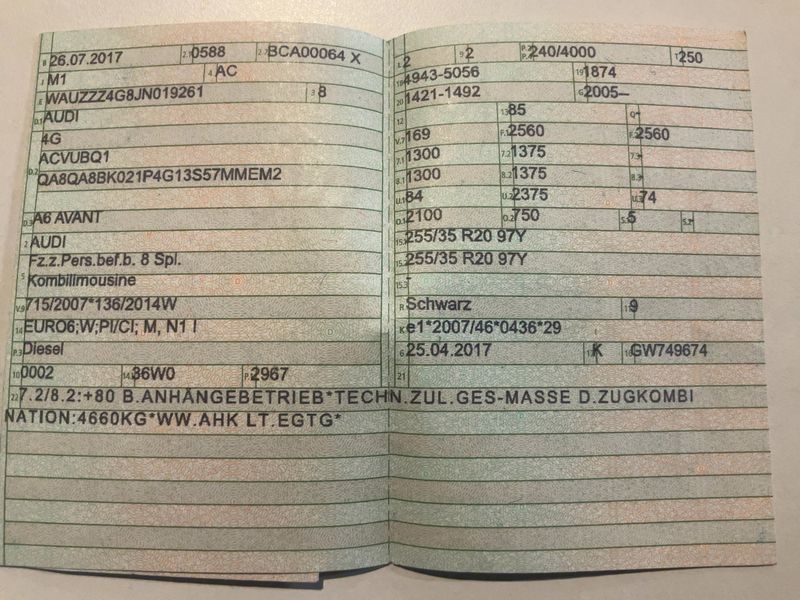 B 26.07.2017 2.1 0588 2.2 BCA00064 X
J M1 4 AC
E WAUZZZ4G8JN019261 3 8
D.1 AUDI
4G
D.2 ACVUBQ1
QA8QA8BK021P4G13S57MMEM2
D.3 A6 AVANT
2 AUDI
5 Fz.z.Pers.bef.b. 8 Spl.
Kombilimousine
V.9 715/2007*136/2014W
14 EURO6;W;PI/CI; M, N1 I
P.3 Diesel
10 0002 14.1 36W0 P.1 2967
22 7.2/8.2:+80 B.ANHÄNGEBETRIEB*TECHN.ZUL.GES-MASSE D.ZUGKOMBI
NATION:4660KG*WW.AHK LT.EGTG*
L 2 9 2 P.2 P.4 240/4000 T 250
18 4943-5056 19 1874
20 1421-1492 G 2005–
12 13 85 Q -
V.7 169 F.1 2560 F.2 2560
7.1 1300 7.2 1375 7.3 -
8.1 1300 8.2 1375 8.3 -
U.1 84 U.2 2375 U.3 74
O.1 2100 O.2 750 S.1 5 S.2 -
15.1 255/35 R20 97Y
15.2 255/35 R20 97Y
15.3 -
R Schwarz 11 9
K e1*2007/46*0436*29
6 25.04.2017 17 K 16 GW749674
21